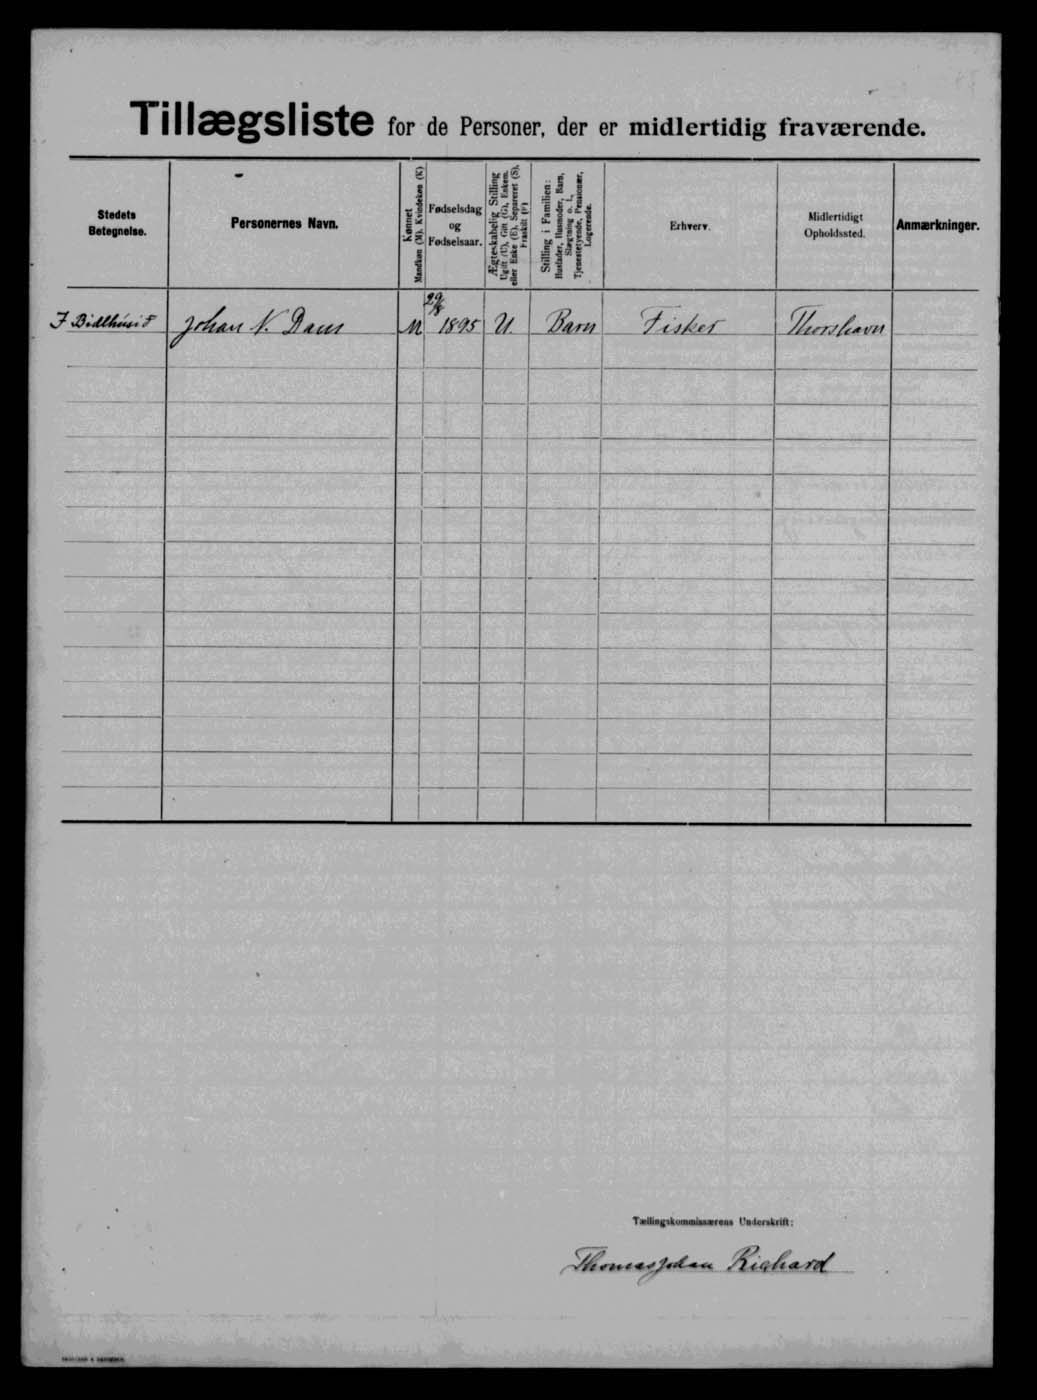 Tillægsliste for de Personer, der er midlertidig fraværende.
Stedets Betegnelse.
Personernes Navn.
Kønnet
Mandkøn (M). Kvindekøn (K)
Fødselsdag
og
Fødselsaar.
Ægteskabelig Stilling
Ugift (U), Gift (G), Enkem.
eller Enke (E), Separeret (S),
Fraskilt (F)
Stilling i Familien:
Husfader, Husmoder, Barn,
Slægtning o. l.,
Tjenestetyende, Pensionær,
Logerende.
Erhverv.
Midlertidigt
Opholdssted.
Anmærkninger.
Johan N. Dam M 29/8 1895 U. Barn Fisker Thorshavn
Tællingskommissærens Underskrift:
Thomas Johan Richard